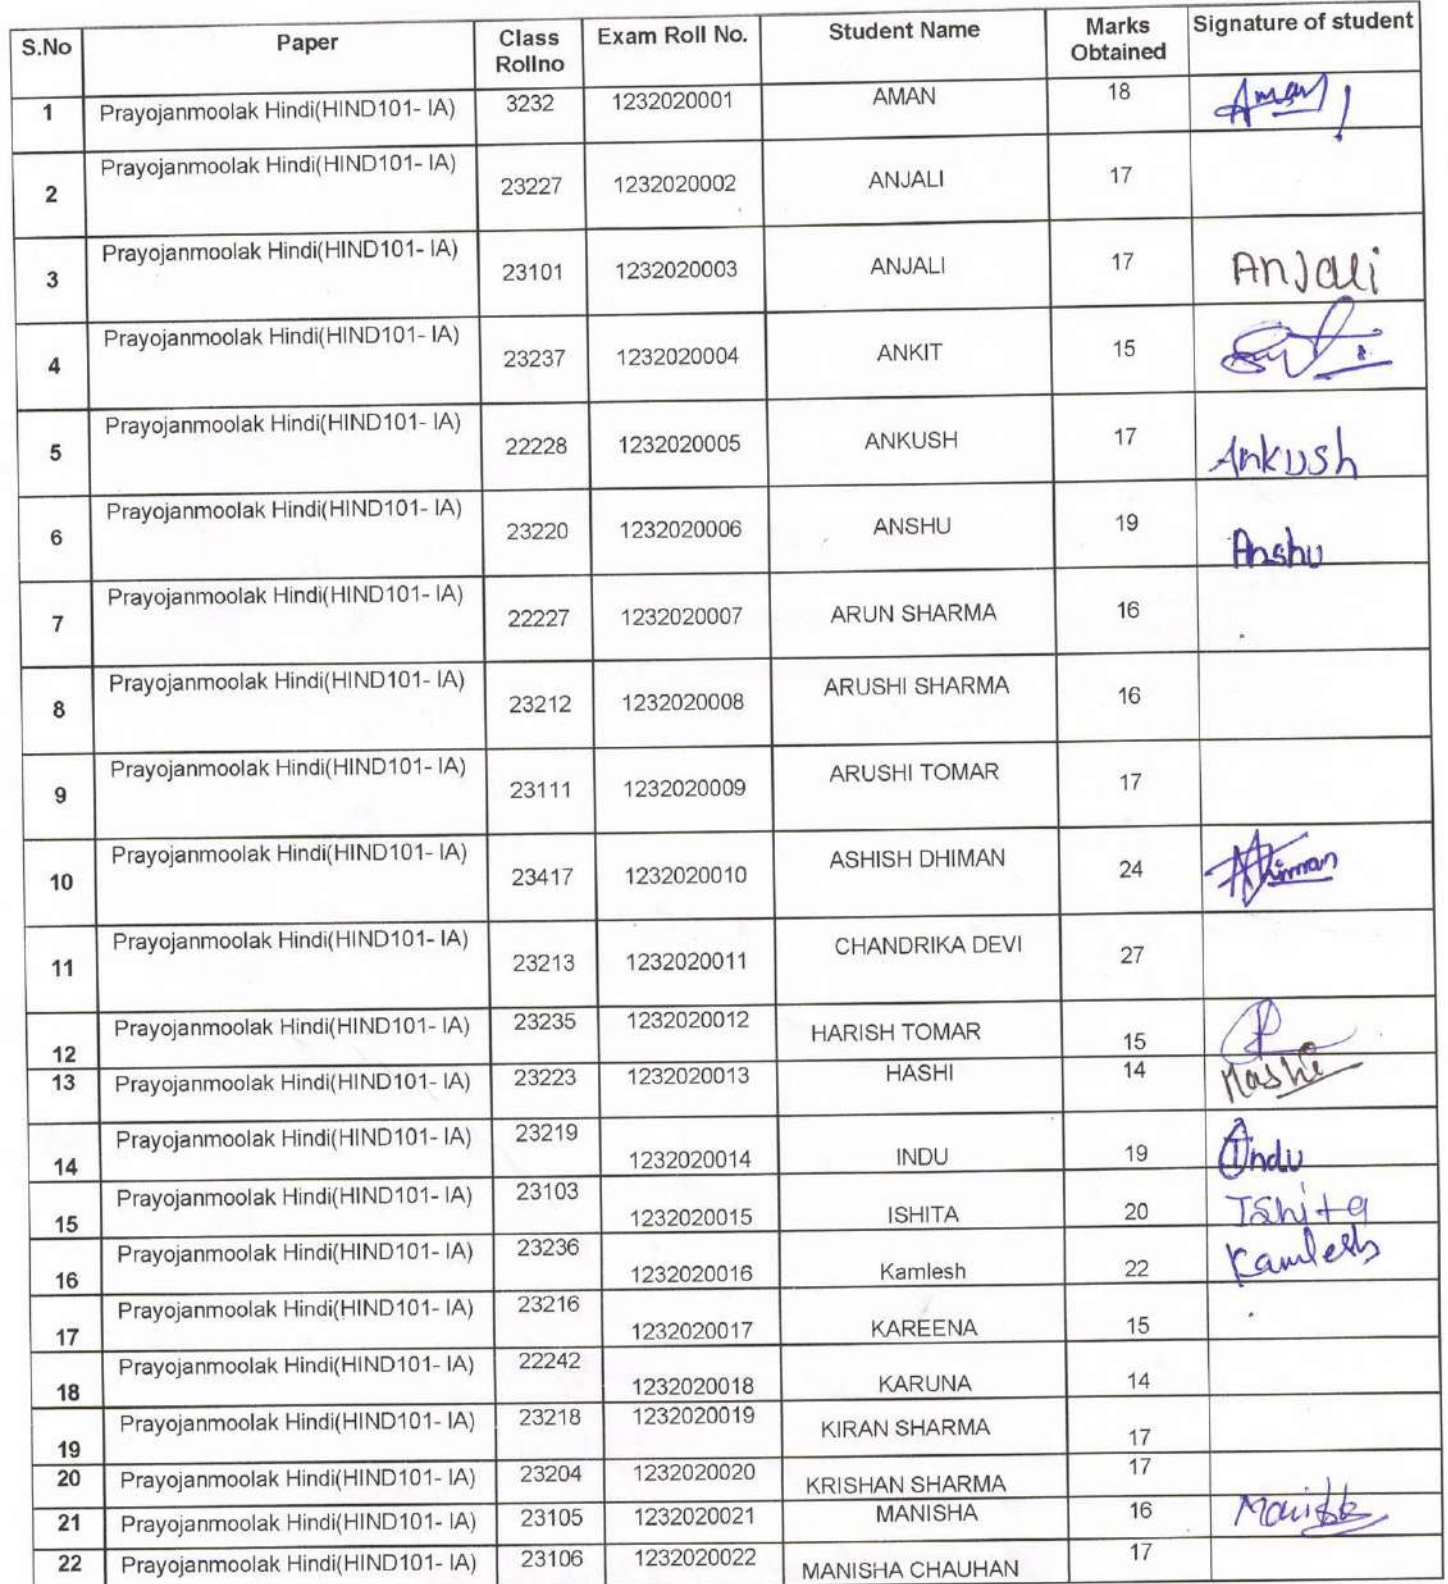 S.No Paper Class Rollno Exam Roll No. Student Name Marks Obtained Signature of student
1 Prayojanmoolak Hindi(HIND101- IA) 3232 1232020001 AMAN 18 Aman
2 Prayojanmoolak Hindi(HIND101- IA) 23227 1232020002 ANJALI 17
3 Prayojanmoolak Hindi(HIND101- IA) 23101 1232020003 ANJALI 17 Anjali
4 Prayojanmoolak Hindi(HIND101- IA) 23237 1232020004 ANKIT 15
5 Prayojanmoolak Hindi(HIND101- IA) 22228 1232020005 ANKUSH 17 Ankush
6 Prayojanmoolak Hindi(HIND101- IA) 23220 1232020006 ANSHU 19 Anshu
7 Prayojanmoolak Hindi(HIND101- IA) 22227 1232020007 ARUN SHARMA 16
8 Prayojanmoolak Hindi(HIND101- IA) 23212 1232020008 ARUSHI SHARMA 16
9 Prayojanmoolak Hindi(HIND101- IA) 23111 1232020009 ARUSHI TOMAR 17
10 Prayojanmoolak Hindi(HIND101- IA) 23417 1232020010 ASHISH DHIMAN 24
11 Prayojanmoolak Hindi(HIND101- IA) 23213 1232020011 CHANDRIKA DEVI 27
12 Prayojanmoolak Hindi(HIND101- IA) 23235 1232020012 HARISH TOMAR 15
13 Prayojanmoolak Hindi(HIND101- IA) 23223 1232020013 HASHI 14 Hashi
14 Prayojanmoolak Hindi(HIND101- IA) 23219 1232020014 INDU 19 Indu
15 Prayojanmoolak Hindi(HIND101- IA) 23103 1232020015 ISHITA 20 Ishita
16 Prayojanmoolak Hindi(HIND101- IA) 23236 1232020016 Kamlesh 22 Kamlesh
17 Prayojanmoolak Hindi(HIND101- IA) 23216 1232020017 KAREENA 15
18 Prayojanmoolak Hindi(HIND101- IA) 22242 1232020018 KARUNA 14
19 Prayojanmoolak Hindi(HIND101- IA) 23218 1232020019 KIRAN SHARMA 17
20 Prayojanmoolak Hindi(HIND101- IA) 23204 1232020020 KRISHAN SHARMA 17
21 Prayojanmoolak Hindi(HIND101- IA) 23105 1232020021 MANISHA 16
22 Prayojanmoolak Hindi(HIND101- IA) 23106 1232020022 MANISHA CHAUHAN 17